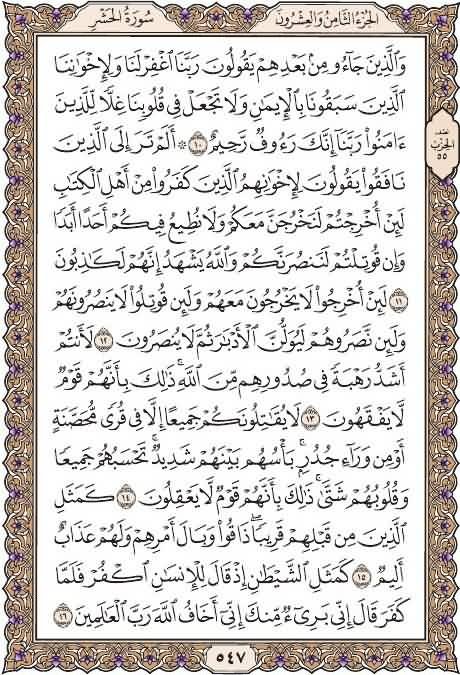 سُورَةُ الحَشْرِ
الجُزْءُ الثَّامِنُ وَالعِشْرُونَ
وَالَّذِينَ جَاءُو مِنْ بَعْدِهِمْ يَقُولُونَ رَبَّنَا اغْفِرْ لَنَا وَلِإِخْوَانِنَا
الَّذِينَ سَبَقُونَا بِالْإِيمَانِ وَلَا تَجْعَلْ فِي قُلُوبِنَا غِلًّا لِلَّذِينَ
ءَامَنُوا رَبَّنَا إِنَّكَ رَءُوفٌ رَحِيمٌ ١٠ ۞ أَلَمْ تَرَ إِلَى الَّذِينَ
نَافَقُوا يَقُولُونَ لِإِخْوَانِهِمُ الَّذِينَ كَفَرُوا مِنْ أَهْلِ الْكِتَابِ
لَئِنْ أُخْرِجْتُمْ لَنَخْرُجَنَّ مَعَكُمْ وَلَا نُطِيعُ فِيكُمْ أَحَدًا أَبَدًا
وَإِنْ قُوتِلْتُمْ لَنَنْصُرَنَّكُمْ وَاللَّهُ يَشْهَدُ إِنَّهُمْ لَكَاذِبُونَ
١١ لَئِنْ أُخْرِجُوا لَا يَخْرُجُونَ مَعَهُمْ وَلَئِنْ قُوتِلُوا لَا يَنْصُرُونَهُمْ
وَلَئِنْ نَصَرُوهُمْ لَيُوَلُّنَّ الْأَدْبَارَ ثُمَّ لَا يُنْصَرُونَ ١٢ لَأَنْتُمْ
أَشَدُّ رَهْبَةً فِي صُدُورِهِمْ مِنَ اللَّهِ ۚ ذَلِكَ بِأَنَّهُمْ قَوْمٌ
لَا يَفْقَهُونَ ١٣ لَا يُقَاتِلُونَكُمْ جَمِيعًا إِلَّا فِي قُرًى مُحَصَّنَةٍ
أَوْ مِنْ وَرَاءِ جُدُرٍ ۚ بَأْسُهُمْ بَيْنَهُمْ شَدِيدٌ ۚ تَحْسَبُهُمْ جَمِيعًا
وَقُلُوبُهُمْ شَتَّىٰ ۚ ذَلِكَ بِأَنَّهُمْ قَوْمٌ لَا يَعْقِلُونَ ١٤ كَمَثَلِ
الَّذِينَ مِنْ قَبْلِهِمْ قَرِيبًا ۖ ذَاقُوا وَبَالَ أَمْرِهِمْ وَلَهُمْ عَذَابٌ
أَلِيمٌ ١٥ كَمَثَلِ الشَّيْطَانِ إِذْ قَالَ لِلْإِنْسَانِ اكْفُرْ فَلَمَّا
كَفَرَ قَالَ إِنِّي بَرِيءٌ مِنْكَ إِنِّي أَخَافُ اللَّهَ رَبَّ الْعَالَمِينَ ١٦
نصف
الحزب
٥٥
٥٤٧